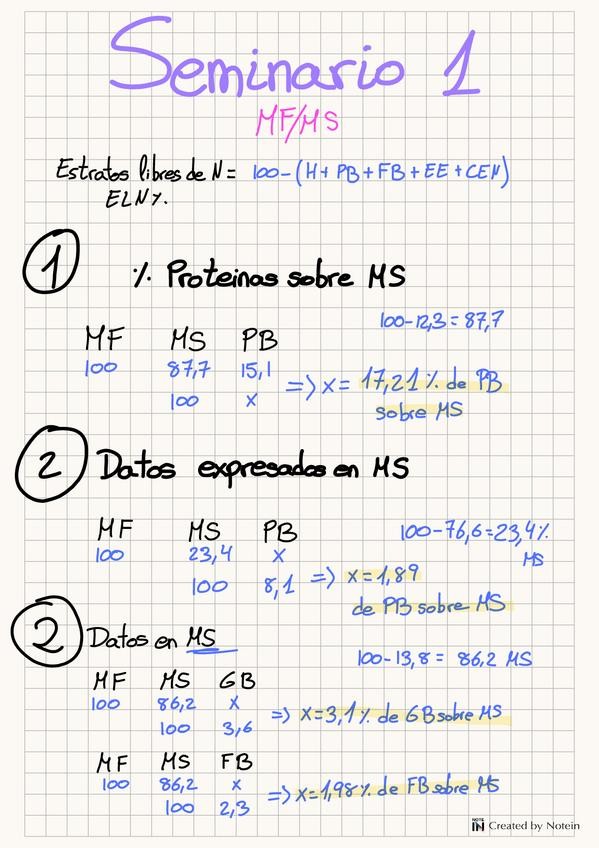 Seminario 1
MF/MS
Estratos libres de N = 100-(H+PB+FB+EE+CEN)
ELN%.
1 % Proteinas sobre MS
100-12,3 = 87,7
MF MS PB
100 87,7 15,1
100 x
=> x = 17,21 % de PB
sobre MS
2 Datos expresados en MS
MF MS PB
100 23,4 x
100 8,1
100-76,6=23,4%
MS
=> x = 1,89
de PB sobre MS
2 Datos en MS
100-13,8 = 86,2 MS
MF MS GB
100 86,2 x
100 3,6
=> x=3,1% de GB sobre MS
MF MS FB
100 86,2 x
100 2,3
=> x=1,98% de FB sobre MS
NOTE IN Created by Notein